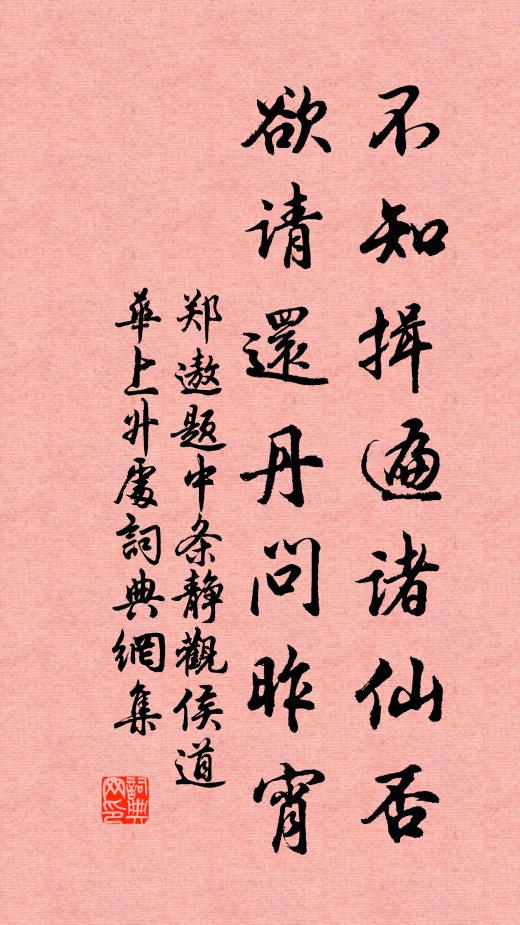 不知揖遍诸仙否
欲请還丹问昨宵
郑遨题中条静觀侯道
華上升處詞典網集
詞典网印